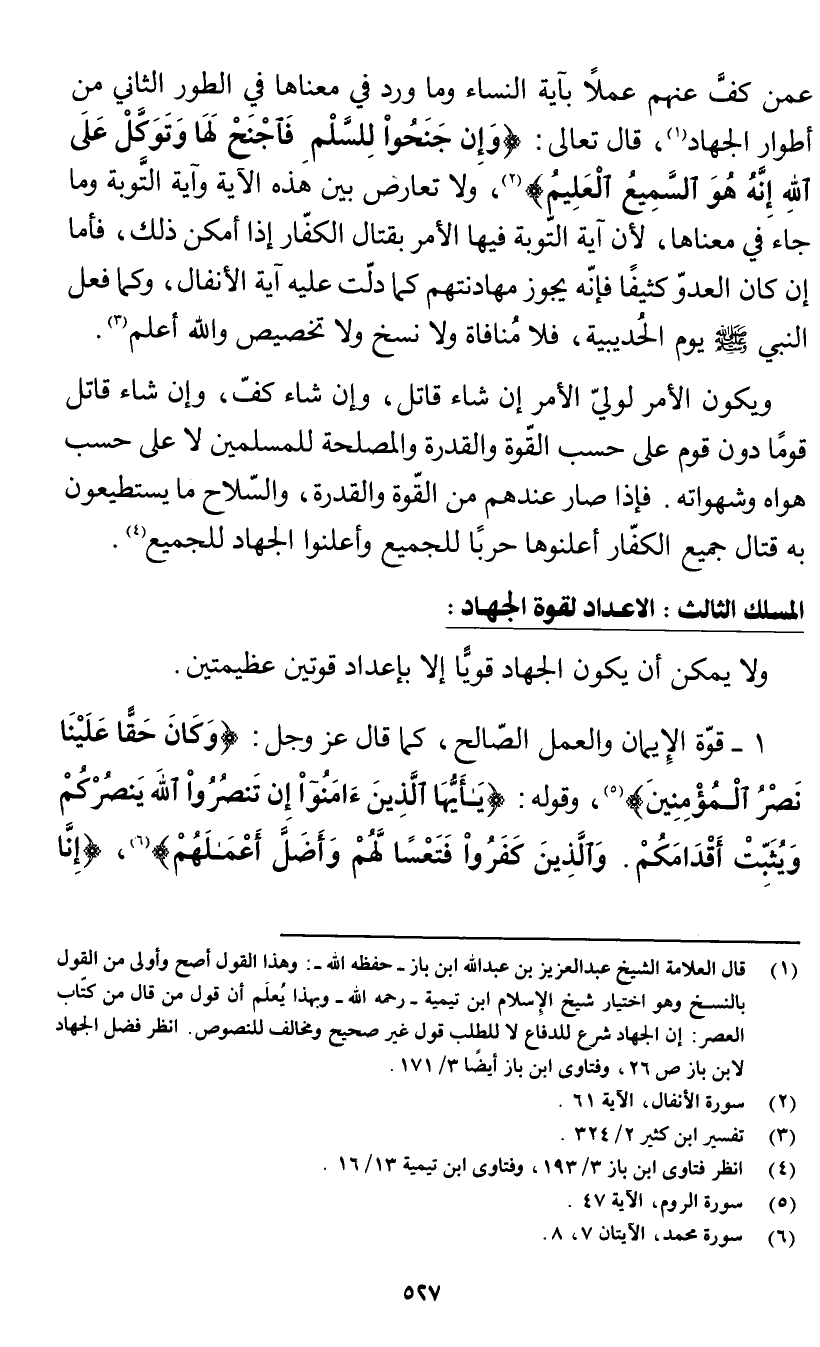 عمن كفَّ عنهم عملاً بآية النساء وما ورد في معناها في الطور الثاني من
أطوار الجهاد(١)، قال تعالى: ﴿وَإِن جَنَحُواْ لِلسَّلْمِ فَٱجْنَحْ لَهَا وَتَوَكَّلْ عَلَى
ٱللهِ إِنَّهُ هُوَ ٱلسَّمِيعُ ٱلْعَلِيمُ﴾(٢)، ولا تعارض بين هذه الآية وآية التَّوبة وما
جاء في معناها، لأن آية التّوبة فيها الأمر بقتال الكفّار إذا أمكن ذلك، فأما
إن كان العدوّ كثيفًا فإنّه يجوز مهادنتهم كما دلّت عليه آية الأنفال، وكما فعل
النبي ﷺ يوم الحُديبية، فلا مُنافاة ولا نسخ ولا تخصيص والله أعلم(٣).
ويكون الأمر لوليّ الأمر إن شاء قاتل، وإن شاء كفّ، وإن شاء قاتل
قومًا دون قوم على حسب القّوة والقدرة والمصلحة للمسلمين لا على حسب
هواه وشهواته. فإذا صار عندهم من القّوة والقدرة، والسّلاح ما يستطيعون
به قتال جميع الكفّار أعلنوها حربًا للجميع وأعلنوا الجهاد للجميع(٤).
المسلك الثالث: الاعداد لقوة الجهاد:
ولا يمكن أن يكون الجهاد قويًّا إلا بإعداد قوتين عظيمتين.
١ ـ قوّة الإيمان والعمل الصّالح، كما قال عز وجل: ﴿وَكَانَ حَقًّا عَلَيْنَا
نَصْرُ ٱلْـمُؤْمِنِينَ﴾(٥)، وقوله: ﴿يَـٰأَيُّهَا ٱلَّذِينَ ءَامَنُوٓاْ إِن تَنصُرُواْ ٱللهَ يَنصُرْكُمْ
وَيُثَبِّتْ أَقْدَامَكُمْ. وَٱلَّذِينَ كَفَرُواْ فَتَعْسًا لَّهُمْ وَأَضَلَّ أَعْمَـٰلَهُمْ﴾(٦)، ﴿إِنَّا
(١) قال العلامة الشيخ عبدالعزيز بن عبدالله ابن باز ـ حفظه الله ـ: وهذا القول أصح وأولى من القول
بالنسخ وهو اختيار شيخ الإسلام ابن تيمية ـ رحمه الله ـ وبهذا يُعلَم أن قول من قال من كتّاب
العصر: إن الجهاد شرع للدفاع لا للطلب قول غير صحيح ومخالف للنصوص. انظر فضل الجهاد
لابن باز ص ٢٦، وفتاوى ابن باز أيضًا ٣/ ١٧١.
(٢) سورة الأنفال، الآية ٦١.
(٣) تفسير ابن كثير ٢/ ٣٢٤.
(٤) انظر فتاوى ابن باز ٣/ ١٩٣، وفتاوى ابن تيمية ١٣/ ١٦.
(٥) سورة الروم، الآية ٤٧.
(٦) سورة محمد، الآيتان ٧، ٨.
٥٢٧